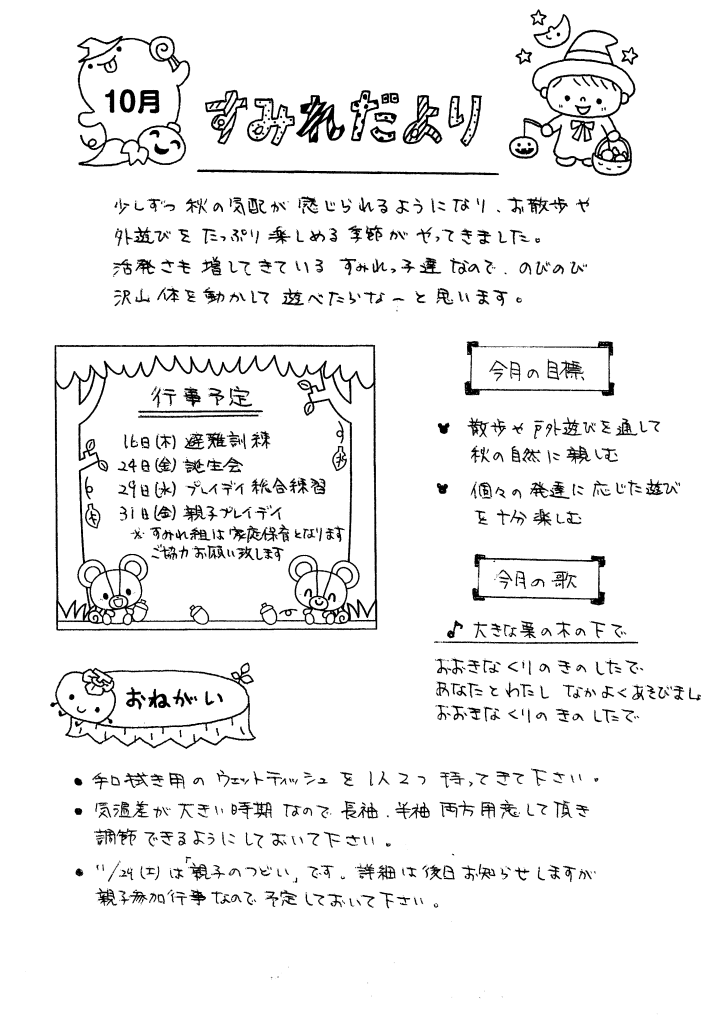 10月
すみれだより
少しずつ秋の気配が感じられるようになり、お散歩や
外遊びをたっぷり楽しめる季節がやってきました。
活発さも増してきているすみれっ子達なので、のびのび
沢山体を動かして遊べたらなーと思います。
行事予定
16日(木) 避難訓練
24日(金) 誕生会
29日(水) プレイデイ総合練習
31日(金) 親子プレイデイ
※ すみれ組は家庭保育となります
ご協力お願い致します
今月の目標
散歩や戸外遊びを通して
秋の自然に親しむ
個々の発達に応じた遊び
を十分楽しむ
今月の歌
♪ 大きな栗の木の下で
おおきなくりのきのしたで
あなたとわたし なかよくあそびましょ
おおきなくりのきのしたで
おねがい
• 手口拭き用のウェットティッシュを1人2つ持ってきて下さい。
• 気温差が大きい時期なので長袖、半袖両方用意して頂き
調節できるようにしておいて下さい。
• 11/29(土)は「親子のつどい」です。詳細は後日お知らせしますが
親子参加行事なので予定しておいて下さい。